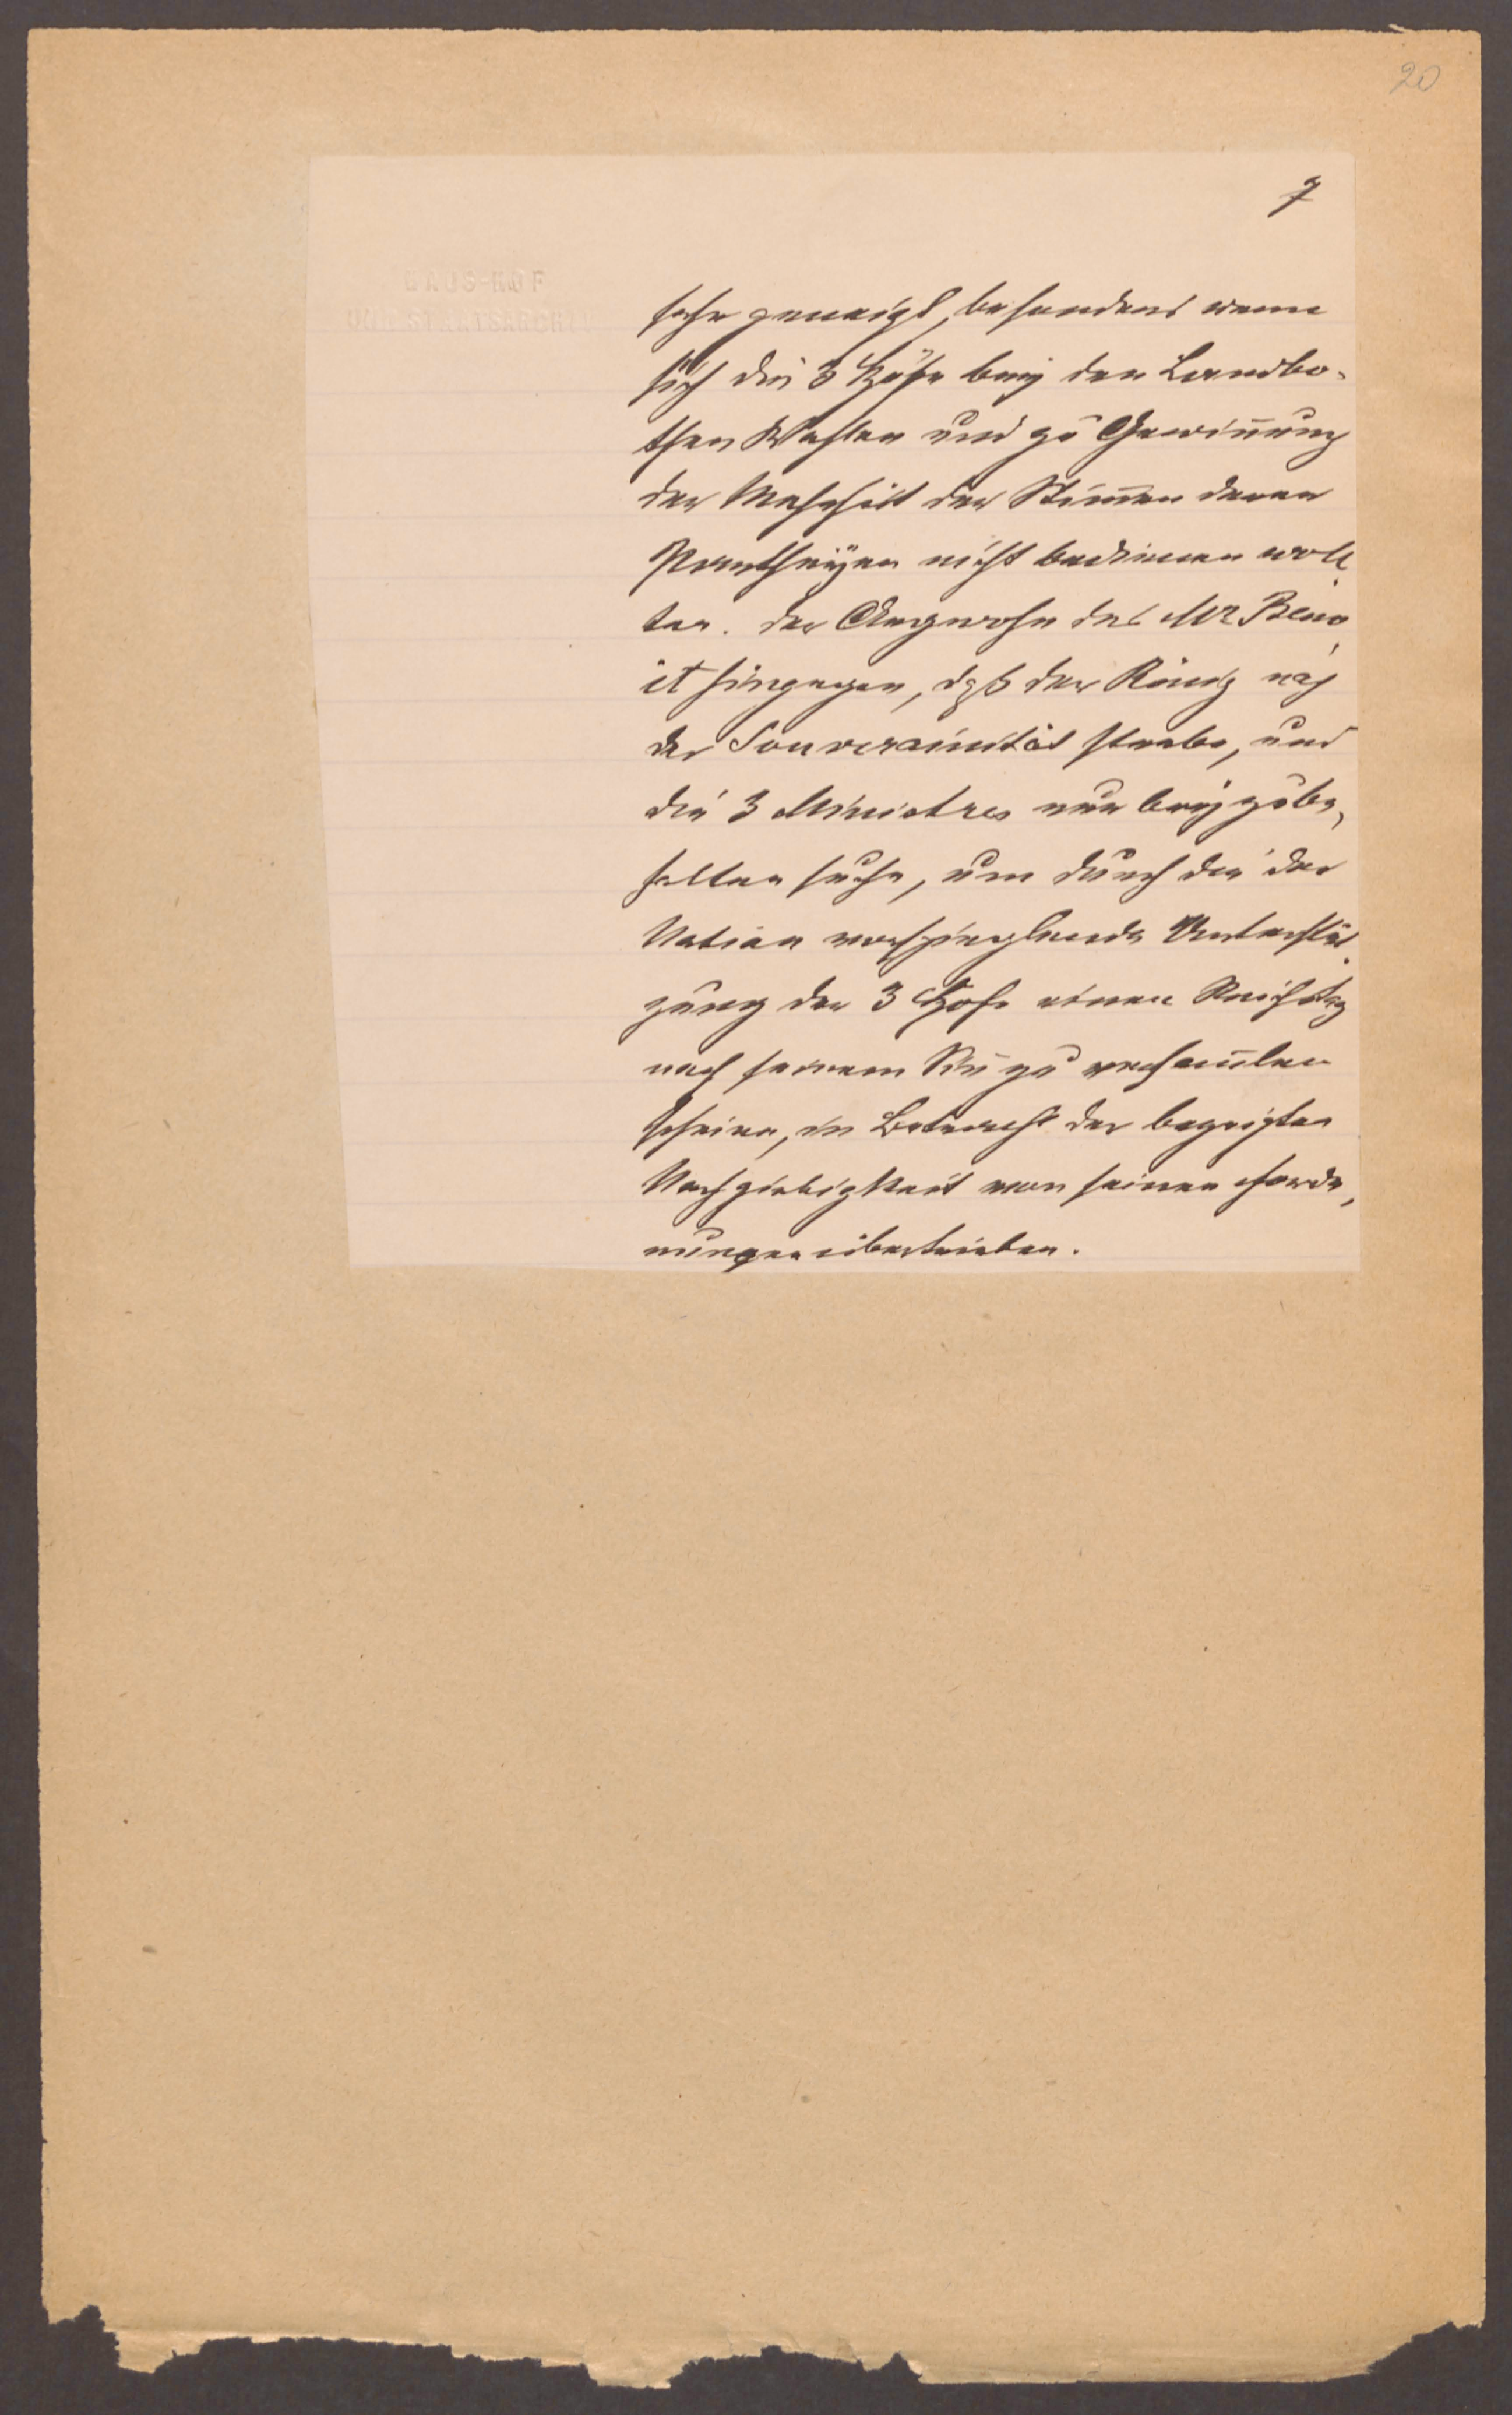 20
7
sehr geneigt, besonders wenn
sich die 3 Höfe bey den Landbo-
then Wahlen und zu Gewin̄ung
der Mehrheit der Stim̄en deren
Partheÿen nicht bedienen woll
ten. Der Argwohn des Mr Beno
it hingegen, daß der König nach
der Souverainität strebe, und
die 3 Ministres nur beyzube-
halten suche, um durch die der
Nation vorspieglende Unterstüt
zung der 3 Höfe einen Reichstag
nach seinem Sin̄ zu versam̄len
scheinen, in Betracht der bezeigten
Nachgiebigkeit von seinen Forde-
rungen übertrieben.